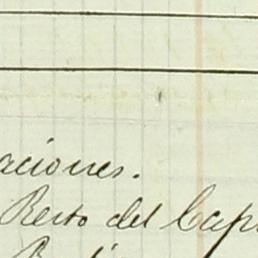 aciones.
Resto del Cap